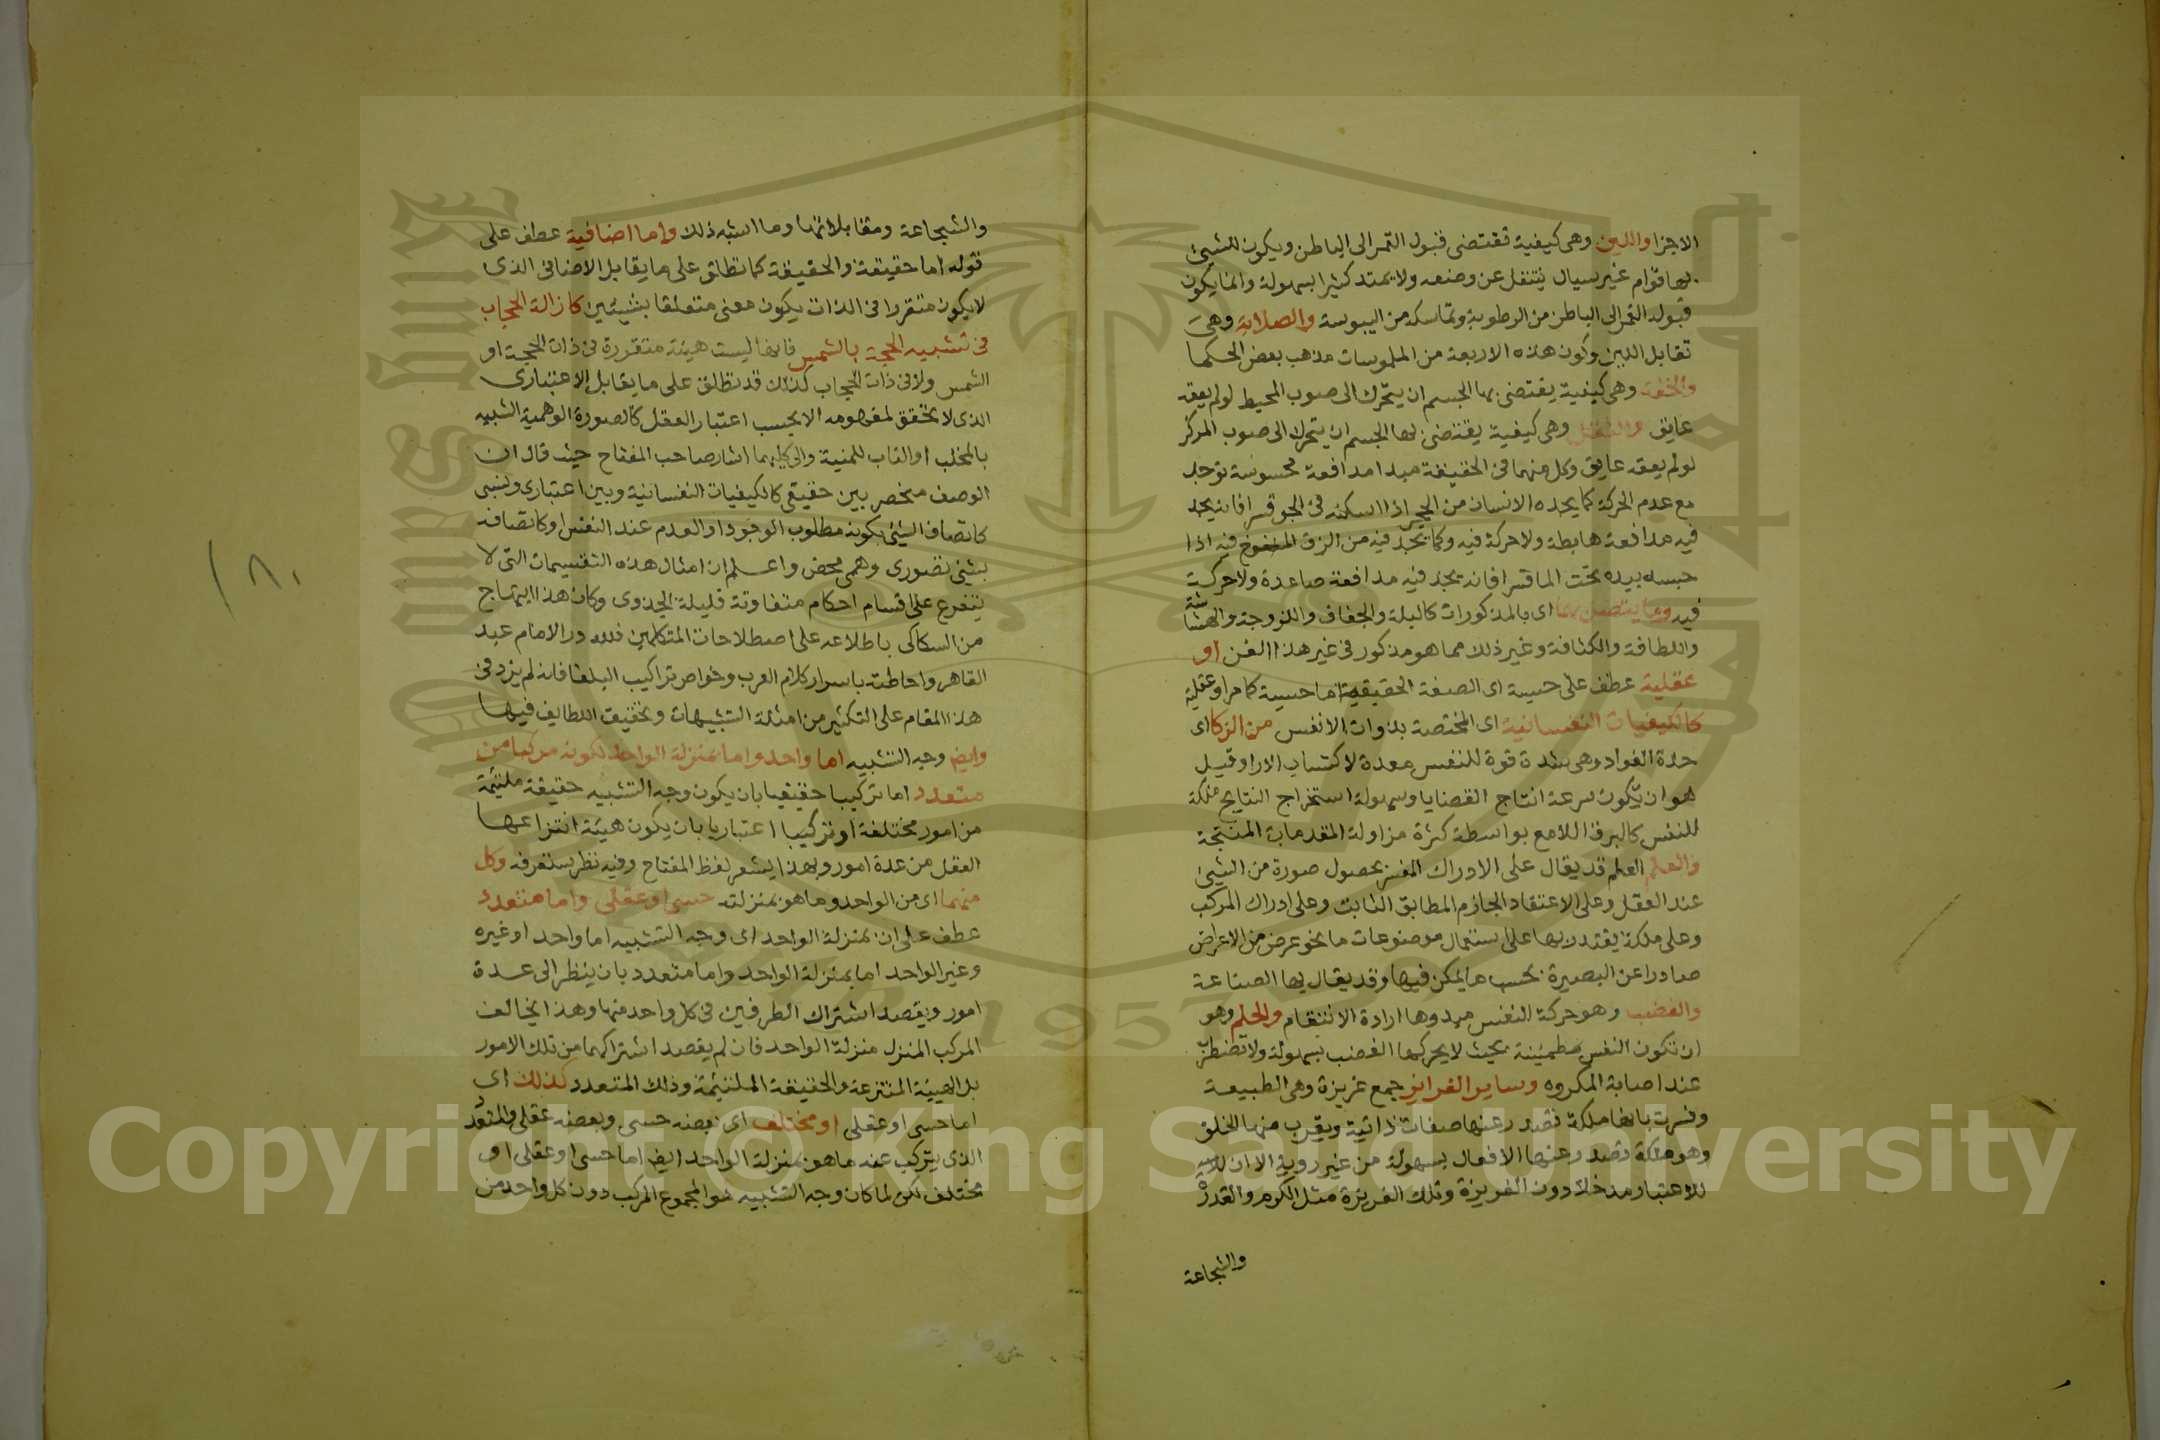 الاجزا واللين وهى كيفية تقتضى قبول الغمز الى الباطن ويكون للشيئ
بها قوام غير سيال ينتقل عن وضعه ولا يمتد كثيرا بسهولة وانما يكون
قبوله الغمز الى الباطن من الرطوبة وتماسكه من اليبوسة والصلابة وهى
تقابل اللين وكون هذه الاربعة من الملموسات مذهب بعض الحكما
والخفة وهى كيفية يقتضى بها الجسم ان يتحرك الى صوب المحيط لو لم يعقه
عايق والثقل وهى كيفية يقتضى بها الجسم ان يتحرك الى صوب المركز
لو لم يعقه عايق وكل منهما فى الحقيقة مبدا مدافعة محسوسة توجد
مع عدم الحركة كما يجده الانسان من الحجر اذا اسكنه فى الجو قسرا فانه يجد
فيه مدافعة هابطة ولا حركة فيه وكما يجد فيه من الزق المنفوخ فيه اذا
حبسه بيده تحت الما قسرا فانه يجد فيه مدافعة صاعدة ولا حركة
فيه وما يتصل بها اى بالمذكورات كالبلة والجفاف واللزوجة والهشاشة
واللطافة والكثافة وغير ذلك مما هو مذكور فى غير هذا الفن او
عقلية عطف على حسية اى الصفة الحقيقية اما حسية كما مر او عقلية
كالكيفيات النفسانية اى المختصة بذوات الانفس من الذكا اى
حدة الفواد وهى شدة قوة للنفس معدة لاكتساب الارا وقيل
هو ان يكون سرعة انتاج القضايا وسهولة استخراج النتايج ملكة
للنفس كالبرق اللامع بواسطة كثرة مزاولة المقدمات المنتجة
والعلم العلم قد يقال على الادراك المفسر بحصول صورة من الشيئ
عند العقل وعلى الاعتقاد الجازم المطابق الثابت وعلى ادراك المركب
وعلى ملكة يقتدر بها على استعمال موضوعات ما نحو غرض من الاغراض
صادرا عن البصيرة بحسب ما يمكن فيها وقد يقال لها الصناعة
والغضب وهو حركة النفس مبدوها ارادة الانتقام والحلم وهو
ان تكون النفس مطمئنة بحيث لا يحركها الغضب بسهولة ولا تضطرب
عند اصابة المكروه وساير الغرايز جمع غريزة وهى الطبيعة
وفسرت بانها ملكة تصدر عنها صفات ذاتية ويقرب منها الخلق
وهو ملكة تصدر عنها الافعال بسهولة من غير روية الا ان
للاعتبار مدخلا دون الغريزة وتلك الغريزة مثل الكرم والقدرة
والشجاعة
والشجاعة ومقابلاتها وما اشبه ذلك واما اضافية عطف على
قوله اما حقيقة والحقيقة كما تطلق على ما يقابل الاضافى الذى
لا يكون متقررا فى الذات يكون معنى متعلقا بشيئين كازالة الحجاب
فى تشبيه الحجة بالشمس فانها ليست هيئة متقررة فى ذات الحجة او
الشمس ولا فى ذات الحجاب كذلك قد تطلق على ما يقابل الاعتبارى
الذى لا تحقق لمفهومه الا بحسب اعتبار العقل كالصورة الوهمية الشبيه
بالمخلب او الناب للمنية والى كليهما اشار صاحب المفتاح حيث قال ان
الوصف منحصر بين حقيقى كالكيفيات النفسانية وبين اعتبارى ونسبى
كاتصاف الشيئ بكونه مطلوب الوجود او العدم عند النفس او كاتصافه
بشئ تصورى وهمى محض واعلم ان امثال هذه التقسيمات التى لا
يتفرع على اقسام احكام متفاوتة قليلة الجدوى وكان هذا ابتهاج
من السكاكى باطلاعه على اصطلاحات المتكلمين فلله در الامام عبد
القاهر واحاطته باسرار كلام العرب وخواص تراكيب البلغا فانه لم يزد فى
هذا المقام على التكثير من امثلة التشبيهات وتحقيق اللطايف فيها
وايض وجه التشبيه اما واحد واما بمنزلة الواحد لكونه مركبا من
متعدد اما تركيبا حقيقيا بان يكون وجه التشبيه حقيقة ملتئمة
من امور مختلفة او تركيبا اعتباريا بان يكون هيئة انتزاعها
العقل من عدة امور وبهذا يشعر لفظ المفتاح وفيه نظر ستعرفه وكل
منهما اى من الواحد وما هو بمنزلته حسى او عقلى واما متعدد
عطف على ان بمنزلة الواحد اى وجه التشبيه اما واحد او غيره
وغير الواحد اما بمنزلة الواحد واما متعدد بان ينظر الى عدة
امور ويقصد اشتراك الطرفين فى كل واحد منها وهذا يخالف
المركب المنزل منزلة الواحد فان لم يقصد اشتراكهما من تلك الامور
بل الهيية المنتزعة والحقيقة الملتئمة وذلك المتعدد كذلك اى
اما حسى او عقلى او مختلف اى بعضه حسى وبعضه عقلى والمتعدد
الذى يتركب عنه ما هو بمنزلة الواحد ايض اما حسى او عقلى او
مختلف لكن لما كان وجه التشبيه هو المجموع المركب دون كل واحد من
١٨٠
1957
Copyright © King Saud University